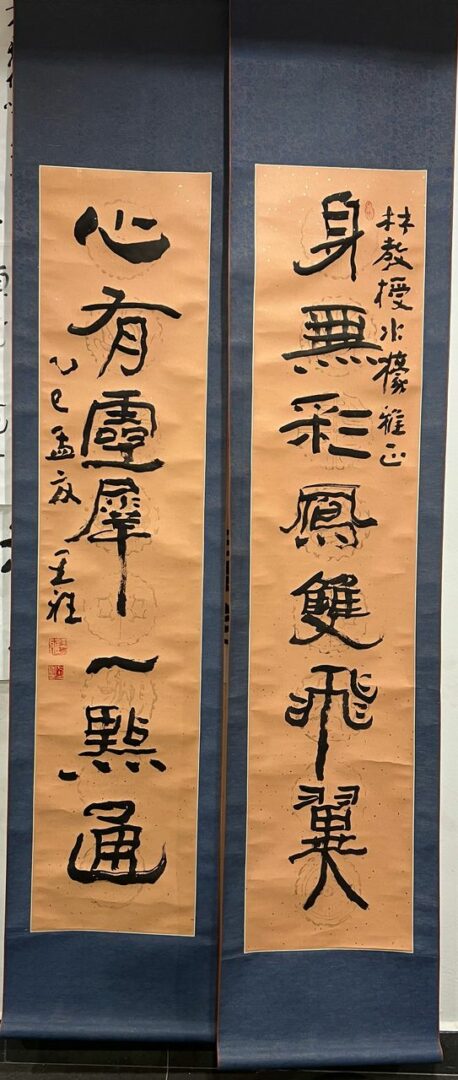 林教授水檬雅正
身無彩鳳雙飛翼
心有靈犀一點通
乙巳孟夏